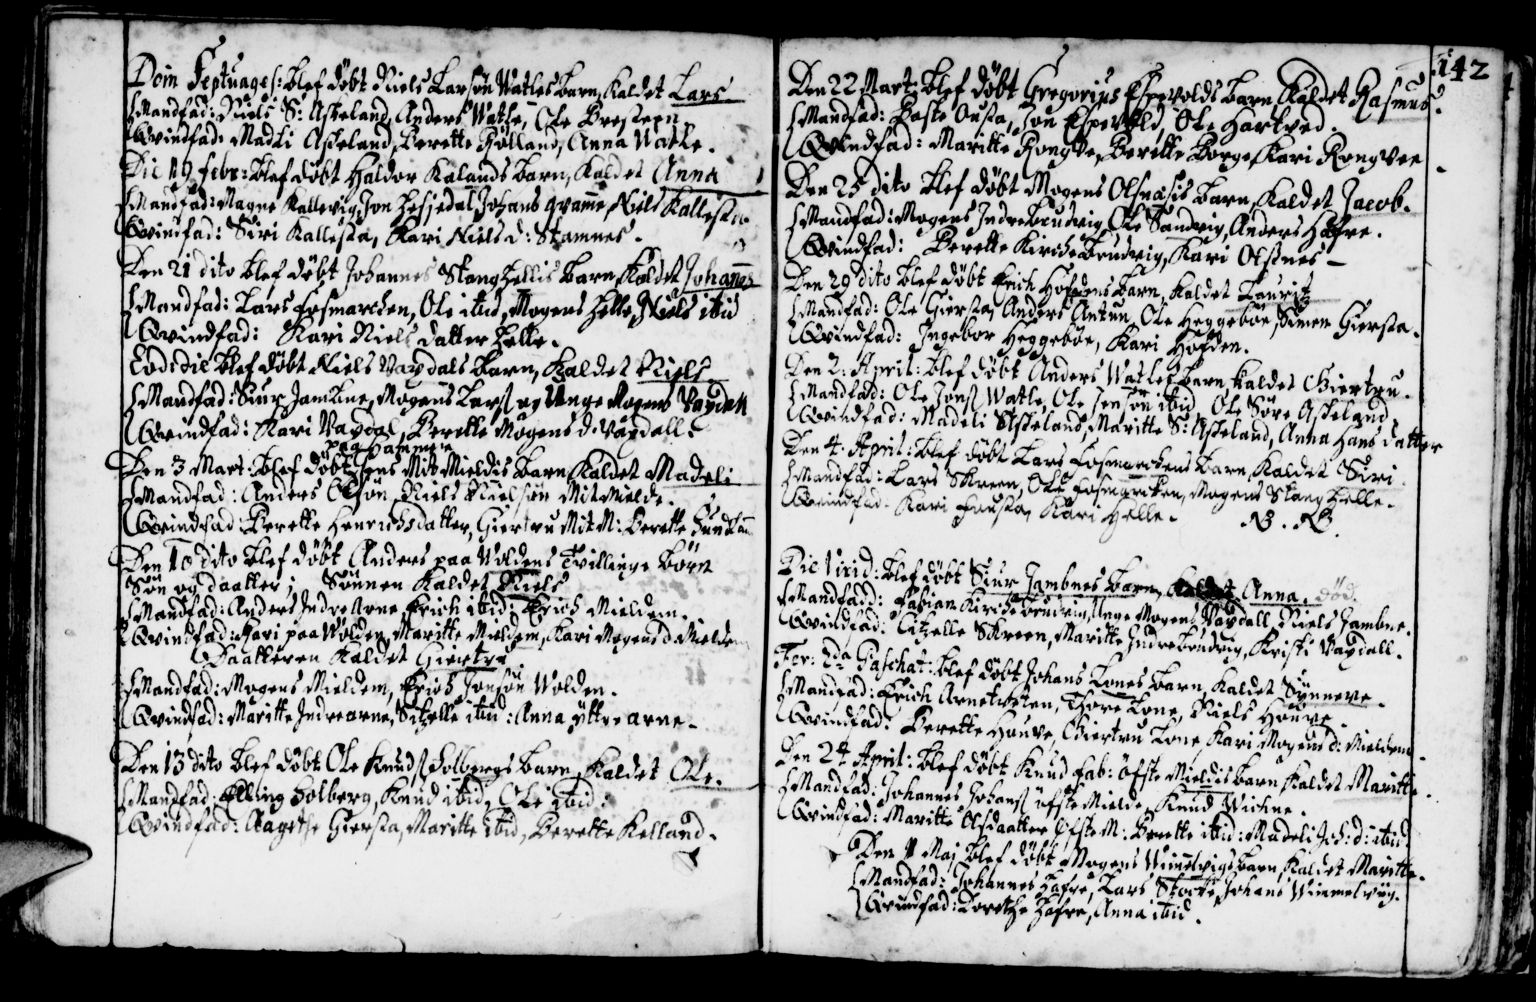 Dom Septuages: blef døbt Niels Larsøn Watles barn, kaldet Lars
Mandfad: Niels S: Asheland, Anders Watle, Ole
Qvindfad: Madli Asheland, Berette Rølland, Anna Watle.
Die 19 febr: blef døbt Haldor Kalands barn, kaldet Anna
Mandfad: Magne Kallevig, Jon Hesjedal, Johans Qvame, Niels Kallesta
Qvindfad: Siri Kallesta, Kari Niels d: Stamnes.
Den 21 dito blef døbt Johannes Stanghellis barn, kaldet Johannes
Mandfad: Lars Fosmarcken, Ole itid, Mogens Helle, Niels itid
Qvindfad: Kari Niels datter Helle.
Eod: die blef døbt Niels Vaxdals barn, kaldet Niels
Mandfad: Siur Jambne, Mogens Lars og Unge Mogens Vaxdall
Qvindfad: Kari Vaxdal, Berette Mogens d: Vaxdall.
paa Hammer
Den 3 Mars: blef døbt Jens Mit Mieldis barn, kaldet Madeli
Mandfad: Anders Olsøn, Niels Nielsøn Mitmielde.
Qvindfad: Berette Henrichsdatter, Giertru Mit M: Berette
Den 10 dito blef døbt Anders paa Woldens Tvillinge børn
Søn og daatter; Sønnen kaldet Niels
Mandfad: Anders Indre Arne, Erich ibid: Erich Mieldem.
Qvindfad: Kari paa Wolden, Maritte Mieldem, Kari Mogens d. Mieldem
Daatteren kaldet Giertru
Mandfad: Mogens Mieldem, Erich Jonsøn Wolden.
Qvindfad: Maritte Indrearne, Sitzelle itid: Anna yttre arne.
Den 13 dito blef døbt Ole Knuds Holbergs barn, kaldet Ole.
Mandfad: Elling Holberg, Knud itid, Ole itid:
Qvindfad: Aagethe Giersta, Maritte itid, Berette Kelland.
142
Den 22 Mart: blef døbt Gregorius Espevolds barn kaldet Rasmus.
Mandfad: Baste Ousta, Jon Espevold, Ole Hartved.
Qvindfad: Maritte Rongve, Berette Borge, Kari Rongven
Den 25 dito blef døbt Mogens Olsnæsis barn, kaldet Jacob.
Mandfad: Mogens Indrebrudvig, Ole Sandvig, Anders Hafre.
Qvindfad: Berette Kirchebrudvig, Kari Olsnes
Den 29 dito blef døbt Erich Hofdens barn, kaldet Lauritz
Mandfad: Ole Giersta, Anders Antun, Ole Heggebøe, Simen Giersta.
Qvindfad: Ingebor Heggebøe, Kari Hofden.
Den 2. April: blef døbt Anders Watles barn kaldet Giertru.
Mandfad: Ole Jons Watle, Ole Jensøn itid, Ole Søre Asheland
Qvindfad: Madeli Asheland, Maritte S: Asheland, Anna Hans datter
Den 4. April: blef døbt Lars Fosmarckens barn, kaldet Siri.
Mandfad: Lars Skreen, Ole Fosmarcken, Mogens Stanghelle.
Qvindfad: Kari Fousta, Kari Helle. N. B.
Die Virid: blef døbt Siur Jambnes barn, kaldet Anna. død.
Mandfadd: Fabian Kirchebrudvig, Unge Mogens Vaxdall, Niels Jambne.
Qvindfad: Citzelle Skreen, Maritte Indrebrudvig, Kristi Vaxdall.
Fer: 2da Paschat: blef døbt Johans Tones barn, kaldet Synneve.
Mandfad: Erich Arnetveten, Thore Tone, Niels Houve.
Qvindfad: Berette Houve, Giertru Tone, Kari Mogens d: Mieldem
Den 24 April: blef døbt Knud Fab: øfste Mieldis barn kaldet Maritte.
Mandfad: Johannes Johans øfste Mielde, Knud Wichne.
Qvindfad: Maritte Olsdaatter øfste M: Berette itid: Madeli Joh: d: itid
Den 1 Maj blef døbt Mogens Wimmelvigs barn, kaldet Maritte.
Mandfad: Johannes Hafre, Lars Stocke, Johans Wimmelvig.
Qvindfad: Dorethe Hafre, Anna itid.